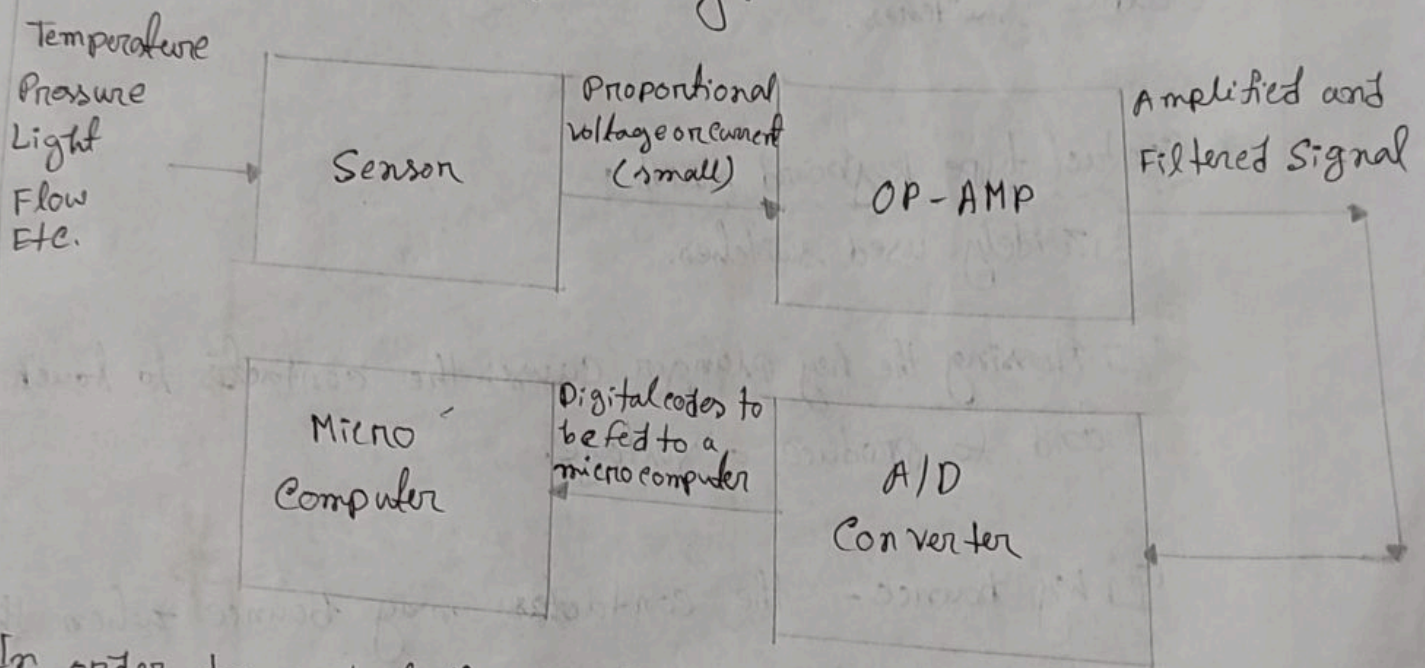 Temperature
Pressure
Light
Flow
Etc.
Sensor
Proportional
voltage or current
(small)
OP-AMP
Amplified and
Filtered Signal
Micro
Computer
Digital codes to
be fed to a
microcomputer
A/D
Converter
In order to